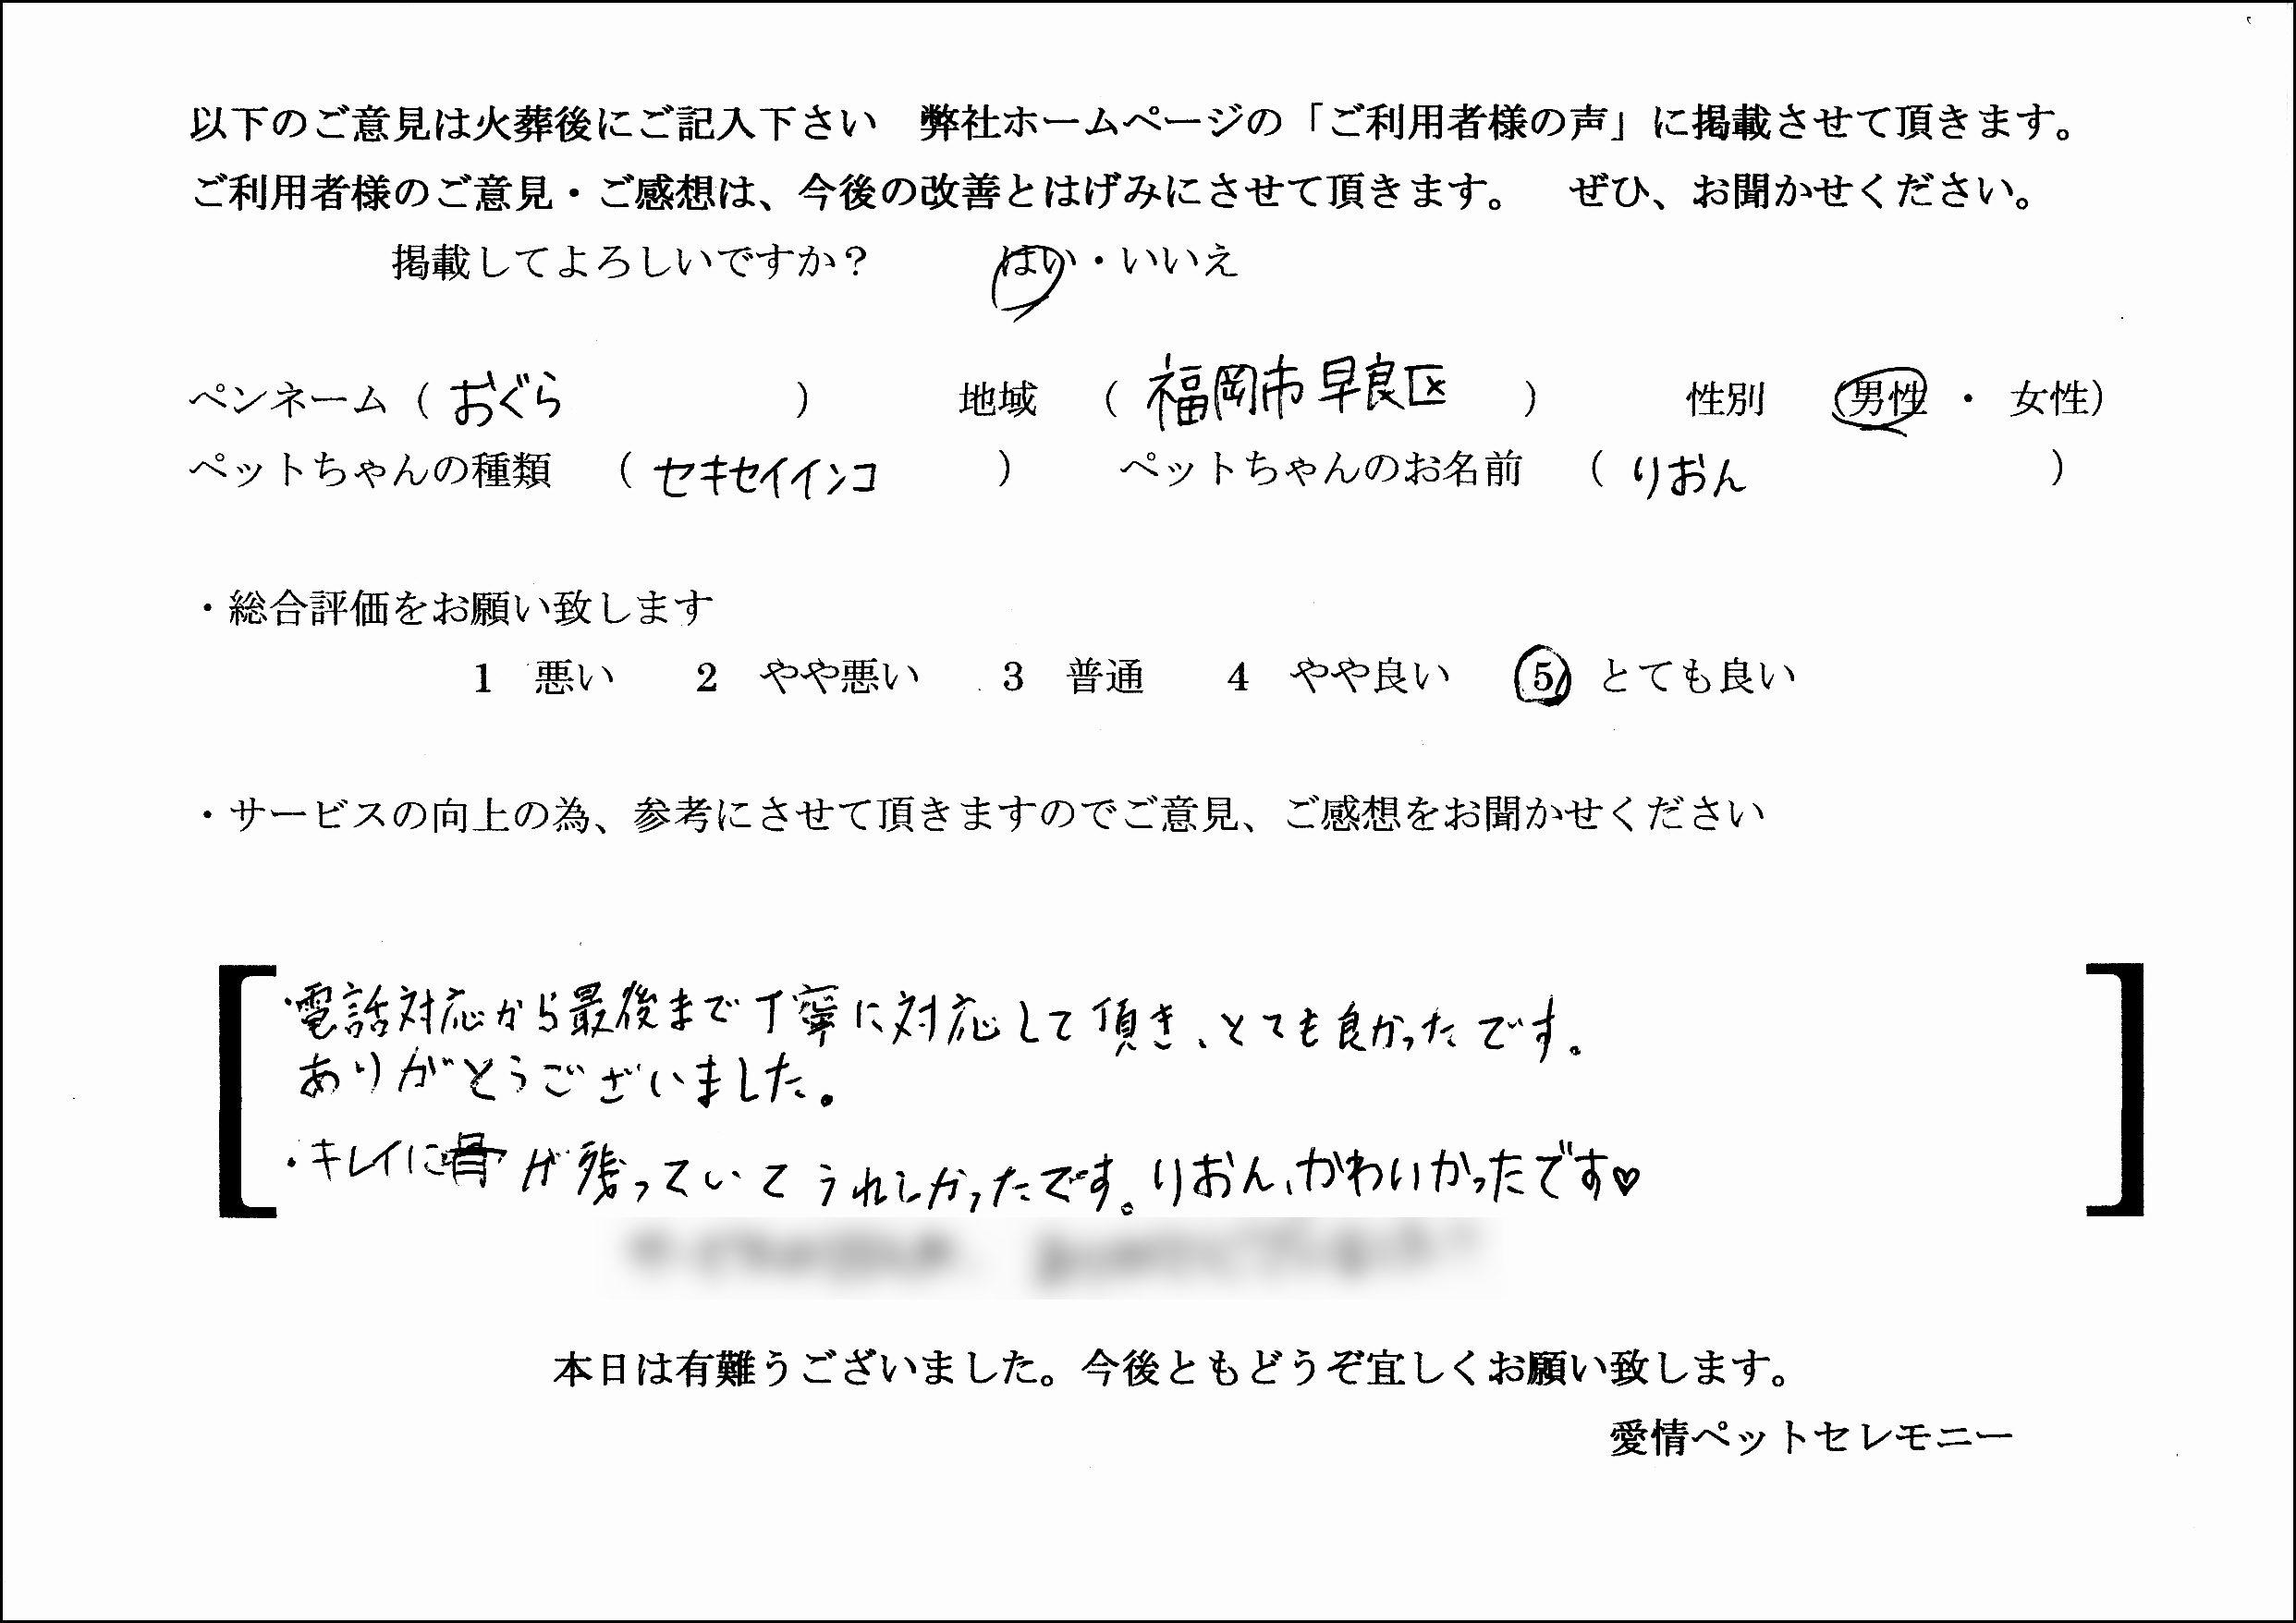 以下のご意見は火葬後にご記入下さい　弊社ホームページの「ご利用者様の声」に掲載させて頂きます。
ご利用者様のご意見・ご感想は、今後の改善とはげみにさせて頂きます。　ぜひ、お聞かせください。
掲載してよろしいですか？　はい・いいえ
ペンネーム（ おぐら ）　地域　（ 福岡市早良区 ）　性別　（男性 ・ 女性）
ペットちゃんの種類　（ セキセイインコ ）　ペットちゃんのお名前　（ りおん ）
・総合評価をお願い致します
1　悪い　2　やや悪い　3　普通　4　やや良い　5　とても良い
・サービスの向上の為、参考にさせて頂きますのでご意見、ご感想をお聞かせください
・電話対応から最後まで丁寧に対応して頂き、とても良かったです。
ありがとうございました。
・キレイに骨が残っていてうれしかったです。りおん、かわいかったです♥
本日は有難うございました。今後ともどうぞ宜しくお願い致します。
愛情ペットセレモニー